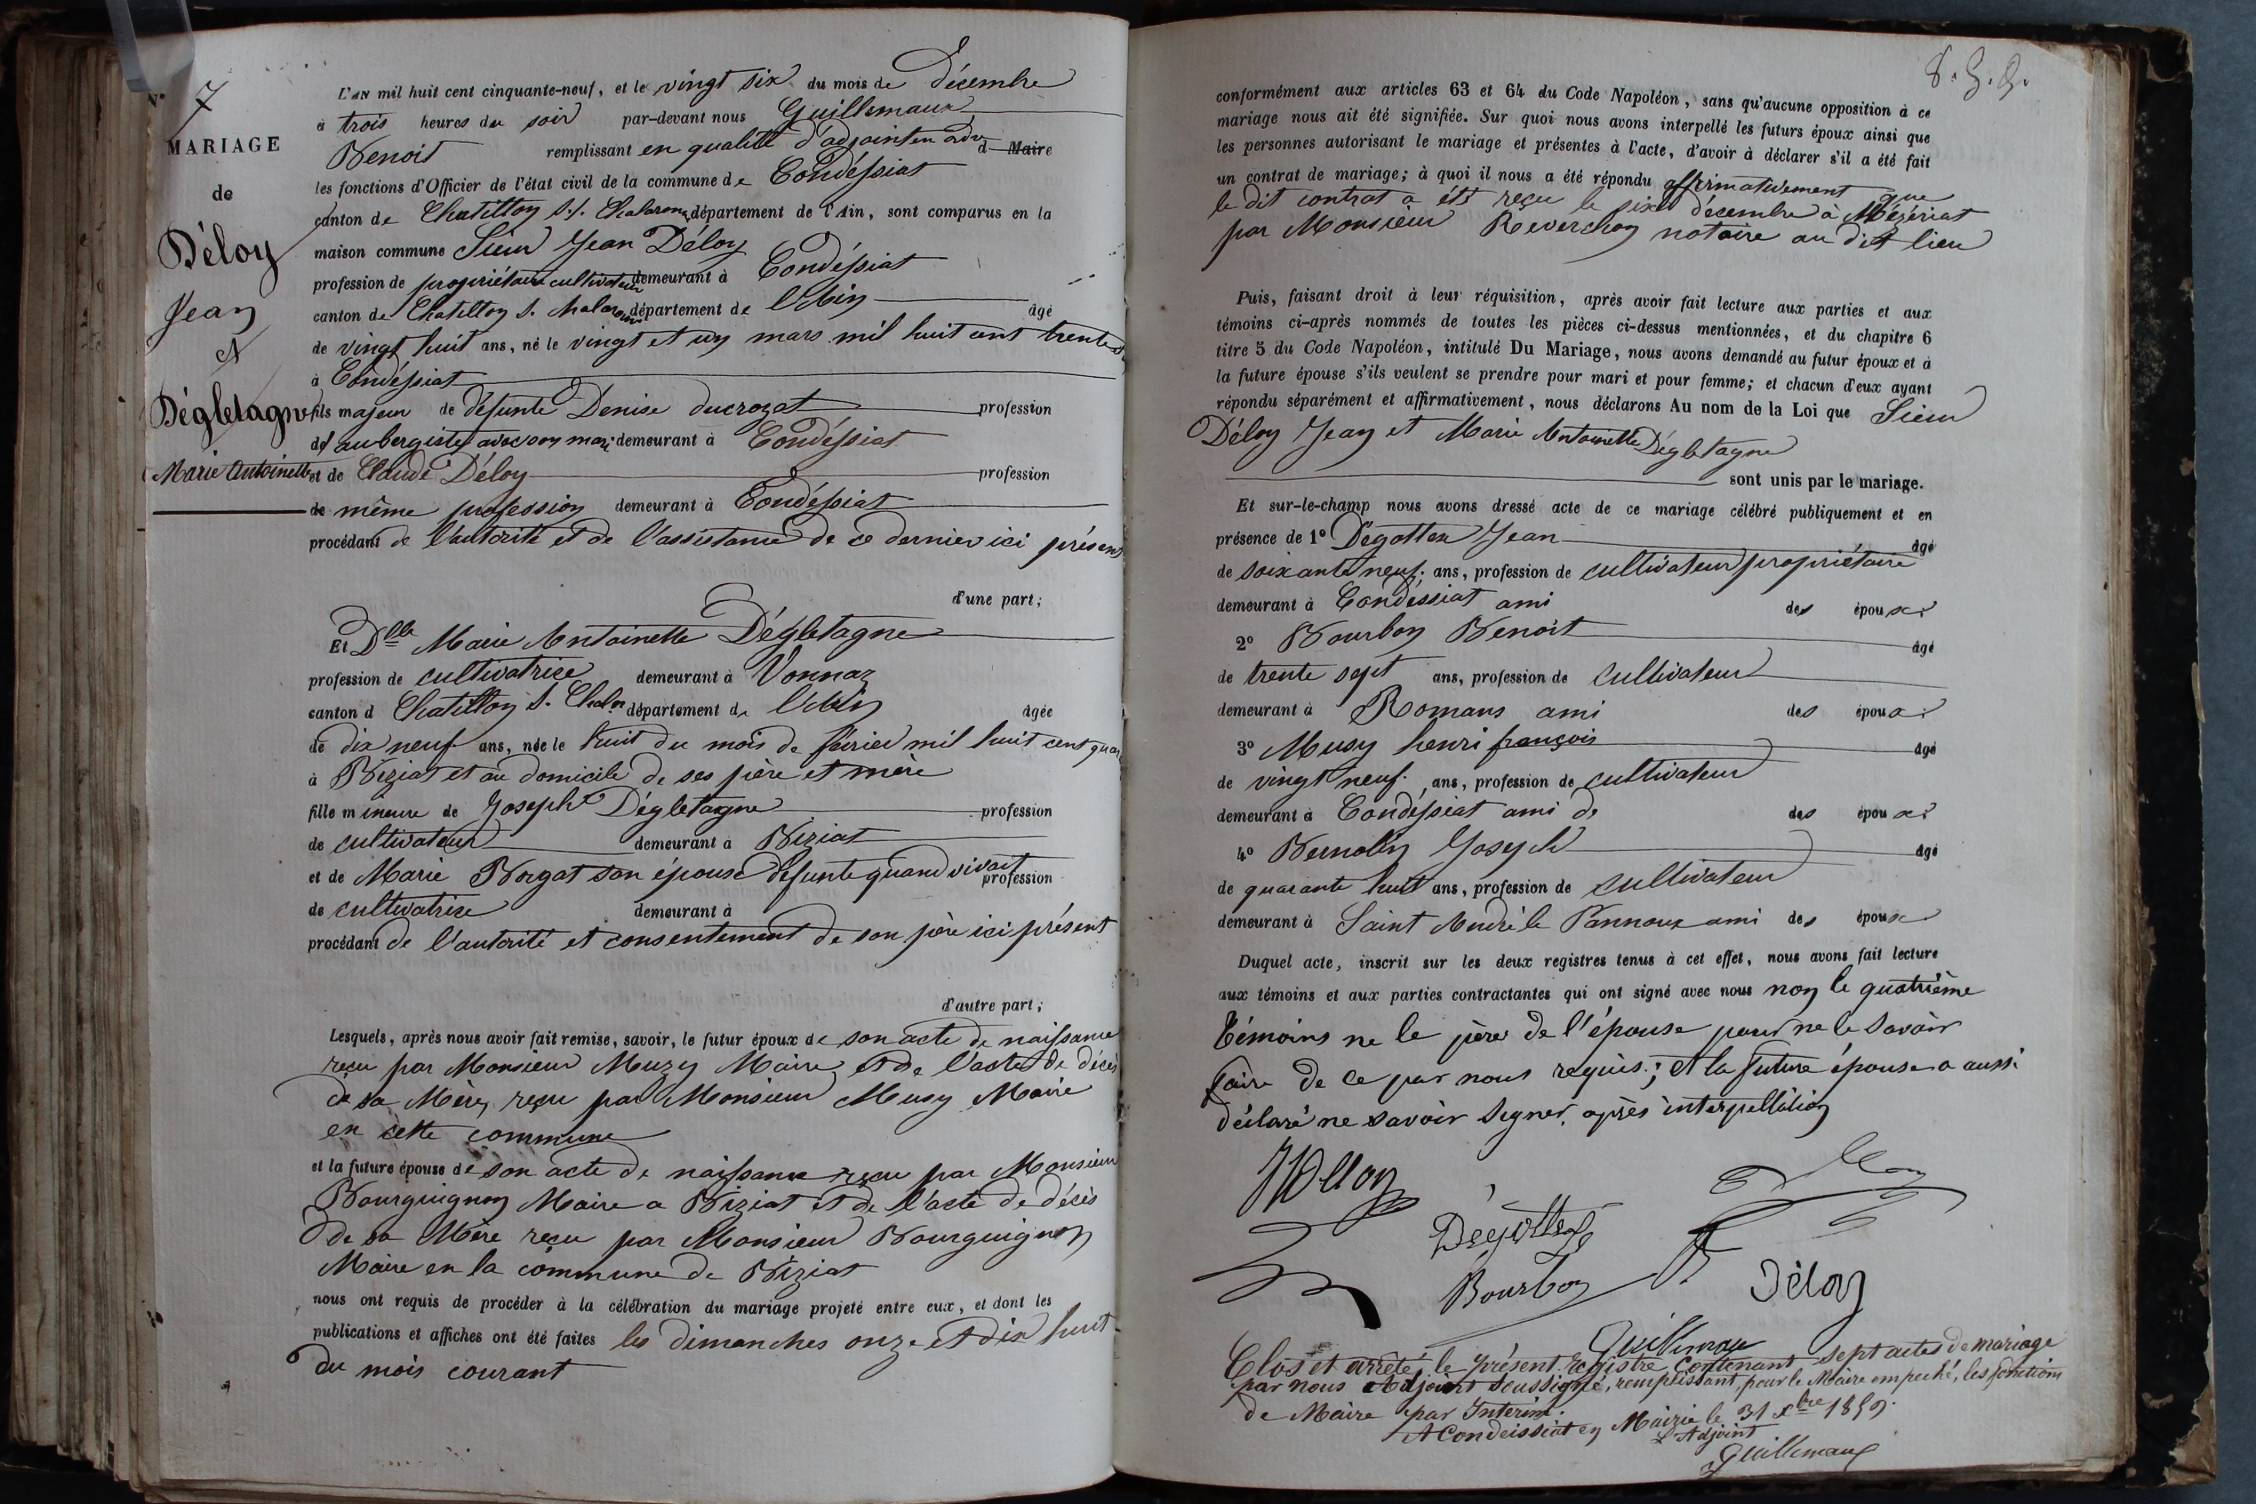 N° 7
MARIAGE
de
Déloy
Jean
et
Dégletagne
Marie Antoinette
L'AN mil huit cent cinquante-neuf, et le vingt six du mois de Décembre
à trois heures du soir par-devant nous Guillemaux
Benoit remplissant en qualité d'adjoint au d Maire
les fonctions d'Officier de l'état civil de la commune de Condéssiat
canton de Chatillon s./. Chalaronne département de l'Ain, sont comparus en la
maison commune Sieur Jean Déloy
profession de propriétaire cultivateur demeurant à Condéssiat
canton de Chatillon s. Chalaronne département de l'Ain âgé
de vingt huit ans, né le vingt et un mars mil huit cent trente
à Condéssiat
fils majeur de défunte Denise ducrozat profession
de aubergiste avec son mari demeurant à Condéssiat
et de Claude Déloy profession
de même profession demeurant à Condéssiat
procédant de l'autorité et de l'assistance de ce dernier ici présent
d'une part;
Et Dlle Marie Antoinette Dégletagne
profession de cultivatrice demeurant à Vonnaz
canton d Chatillon s. Chalar département de l'Ain âgée
de dix neuf ans, née le huit du mois de février mil huit cent quar
à Biziat et au domicile de ses père et mère
fille mineure de Joseph Dégletagne profession
de cultivateur demeurant à Biziat
et de Marie Borgat son épouse défunte quand vivait profession
de cultivatrice demeurant à
procédant de l'autorité et consentement de son père ici présent
d'autre part;
Lesquels, après nous avoir fait remise, savoir, le futur époux de son acte de naissance
reçu par Monsieur Muzy Maire et de l'acte de décès
de sa Mère, reçu par Monsieur Musy Maire
en cette commune
et la future épouse de son acte de naissance reçu par Monsieur
Bourguignon Maire a Biziat et de l'acte de décès
de sa Mère reçu par Monsieur Bourguignon
Maire en la commune de Biziat
nous ont requis de procéder à la célébration du mariage projeté entre eux, et dont les
publications et affiches ont été faites les dimanches onze et dix huit
du mois courant
conformément aux articles 63 et 64 du Code Napoléon, sans qu'aucune opposition à ce
mariage nous ait été signifiée. Sur quoi nous avons interpellé les futurs époux ainsi que
les personnes autorisant le mariage et présentes à l'acte, d'avoir à déclarer s'il a été fait
un contrat de mariage; à quoi il nous a été répondu affirmativement que
le dit contrat a été reçu le six décembre à Mézériat
par Monsieur Reverchon notaire au dit lieu
Puis, faisant droit à leur réquisition, après avoir fait lecture aux parties et aux
témoins ci-après nommés de toutes les pièces ci-dessus mentionnées, et du chapitre 6
titre 5 du Code Napoléon, intitulé Du Mariage, nous avons demandé au futur époux et à
la future épouse s'ils veulent se prendre pour mari et pour femme; et chacun d'eux ayant
répondu séparément et affirmativement, nous déclarons Au nom de la Loi que Sieur
Déloy Jean et Marie Antoinette Dégletagne
sont unis par le mariage.
Et sur-le-champ nous avons dressé acte de ce mariage célébré publiquement et en
présence de 1° Dégottex Jean âgé
de soixante neuf. ans, profession de cultivateur propriétaire
demeurant à Condéssiat ami des époux
2° Bourbon Benoit âgé
de trente sept ans, profession de cultivateur
demeurant à Romans ami des époux
3° Musy henri françois âgé
de vingt neuf. ans, profession de cultivateur
demeurant à Condéssiat ami de des époux
4° Bernolin Joseph âgé
de quarante huit ans, profession de cultivateur
demeurant à Saint André le Pannoux ami des époux
Duquel acte, inscrit sur les deux registres tenus à cet effet, nous avons fait lecture
aux témoins et aux parties contractantes qui ont signé avec nous non le quatrième
Témoins ne le père de l'épouse pour ne le savoir
faire de ce par nous requis; et la future épouse a aussi
déclaré ne savoir signer, après interpellation
Dégottex
Bourbon
Déloy
Guillemaux
Clos et arrêté le présent registre contenant sept actes de mariage
par nous Adjoint soussigné, remplissant, pour le Maire empeché, les fonctions
de Maire par Interim.
A Condeissiat en Mairie le 31 Xbre 1859.
L'Adjoint
Guillemaux